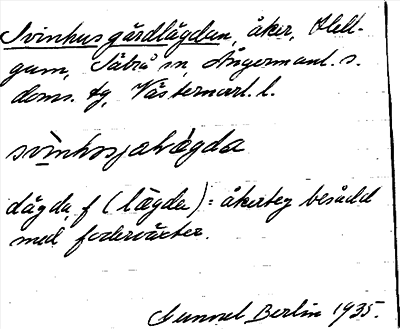 Svinhusgårdlägdan, åker, Häll-
gum, Säbrå sn, Ångermanl. s.
doms. tg, Västernorrl. l.
lägda f (lägda) = åkerteg besådd
med foderväxter.
Gunnel Berlin 1935.